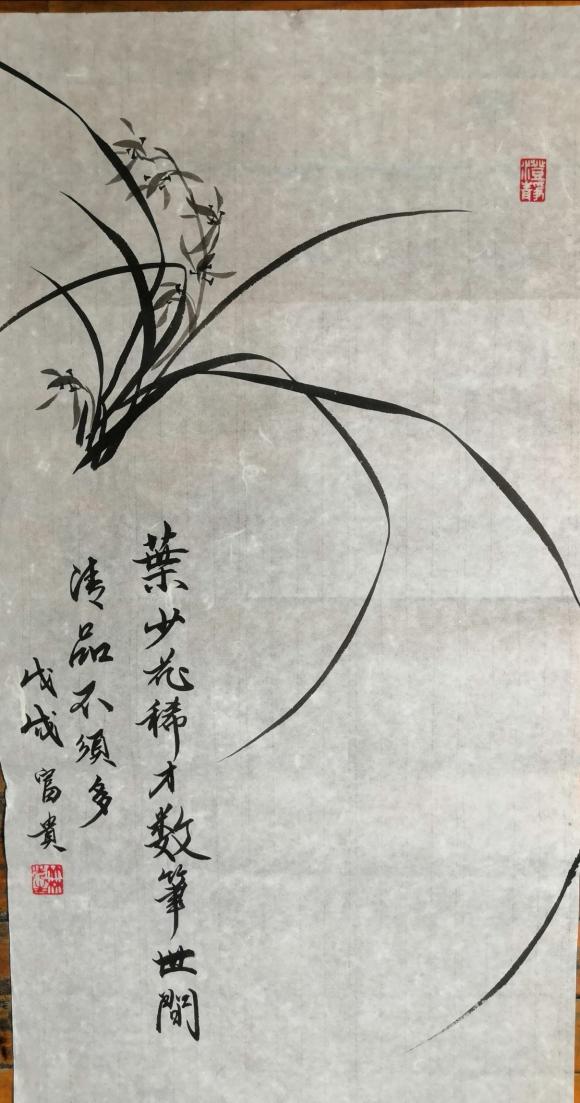 葉少花稀才數筆世間
清品不須多
戊戌富貴
澄靜